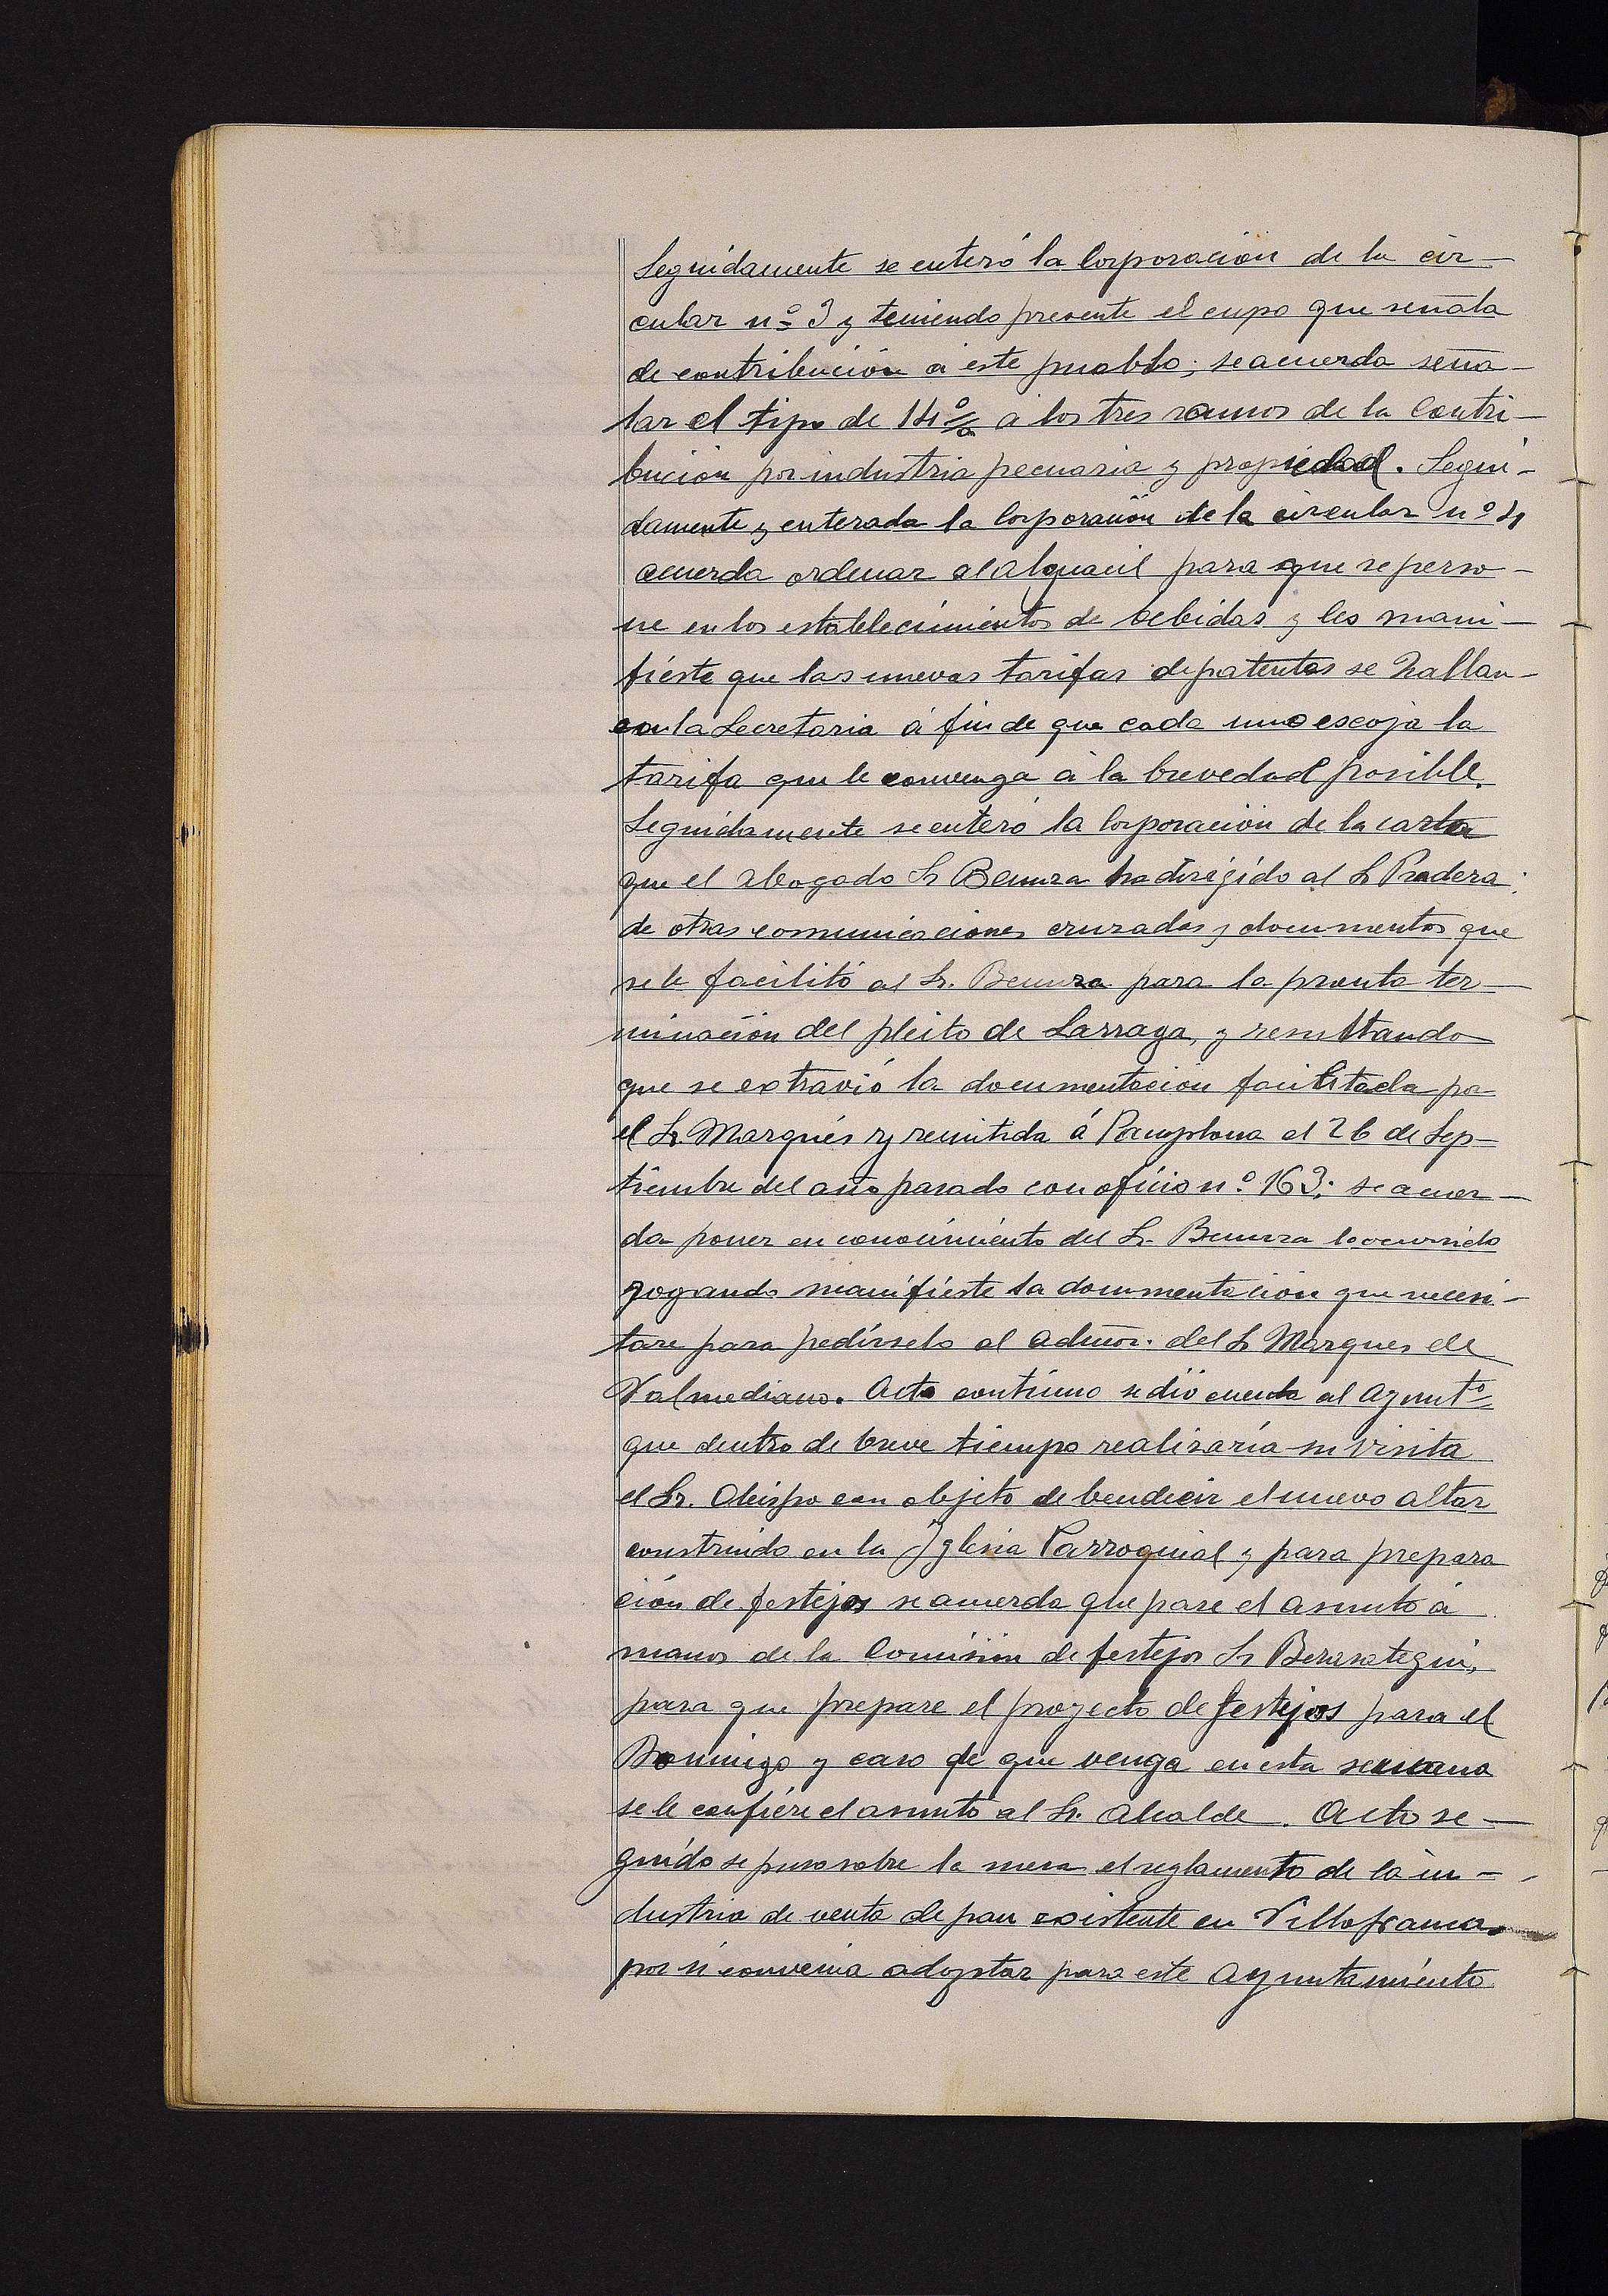 Seguidamente se enteró la Corporación de la cir-
cular nº 3 y teniendo presente el cupo que señala
de contribución á este pueblo; se acuerda seña-
lar el tipo de 14 % á los tres ramos de la Contri-
bución por industria pecuaria y propiedad. Segui-
damente y enterada la Corporación de la circular nº 4
acuerda ordenar al alguacil para que se perso-
ne en los establecimientos de bebidas y les mani-
fieste que las nuevas tarifas de patentes se hallan
en la Secretaria á fin de que cada uno escoja la
tarifa que le convenga á la brevedad posible.
Seguidamente se enteró la Corporación de la carta
que el abogado Sr Beunza ha dirigido al Sr Pradera;
de otras comunicaciones cruzadas y documentos que
se le facilitó al Sr. Beunza para la pronta ter-
minación del pleito de Larraga, y resultando
que se extravió la documentación facilitada por
el Sr. Marqués y remitida á Pamplona el 26 de Sep-
tiembre del año pasado con oficio n.º 163; se acuer-
da poner en conocimiento del Sr. Beunza lo ocurrido
rogando manifieste la documentación que necesi-
tare para pedírselo al admor. del Sr Marques de
Valmediano. Acto continuo se dió cuenta al Ayuntº
que dentro de breve tiempo realizaría su visita
el Sr. Obispo con objeto de bendecir el nuevo altar
construido en la Iglesia Parroquial y para prepara
ción de festejos se acuerda que pase el asunto á
manos de la Comisión de festejos Sr Berasategui,
para que prepare el proyecto de festejos para el
Domingo y caso de que venga en esta semana
se le confiere el asunto al Sr. Alcalde. Acto se-
guido se puso sobre la mesa el reglamento de la in-
dustria de venta de pan existente en Villafranca
por si convenia adoptar para este Ayuntamiento